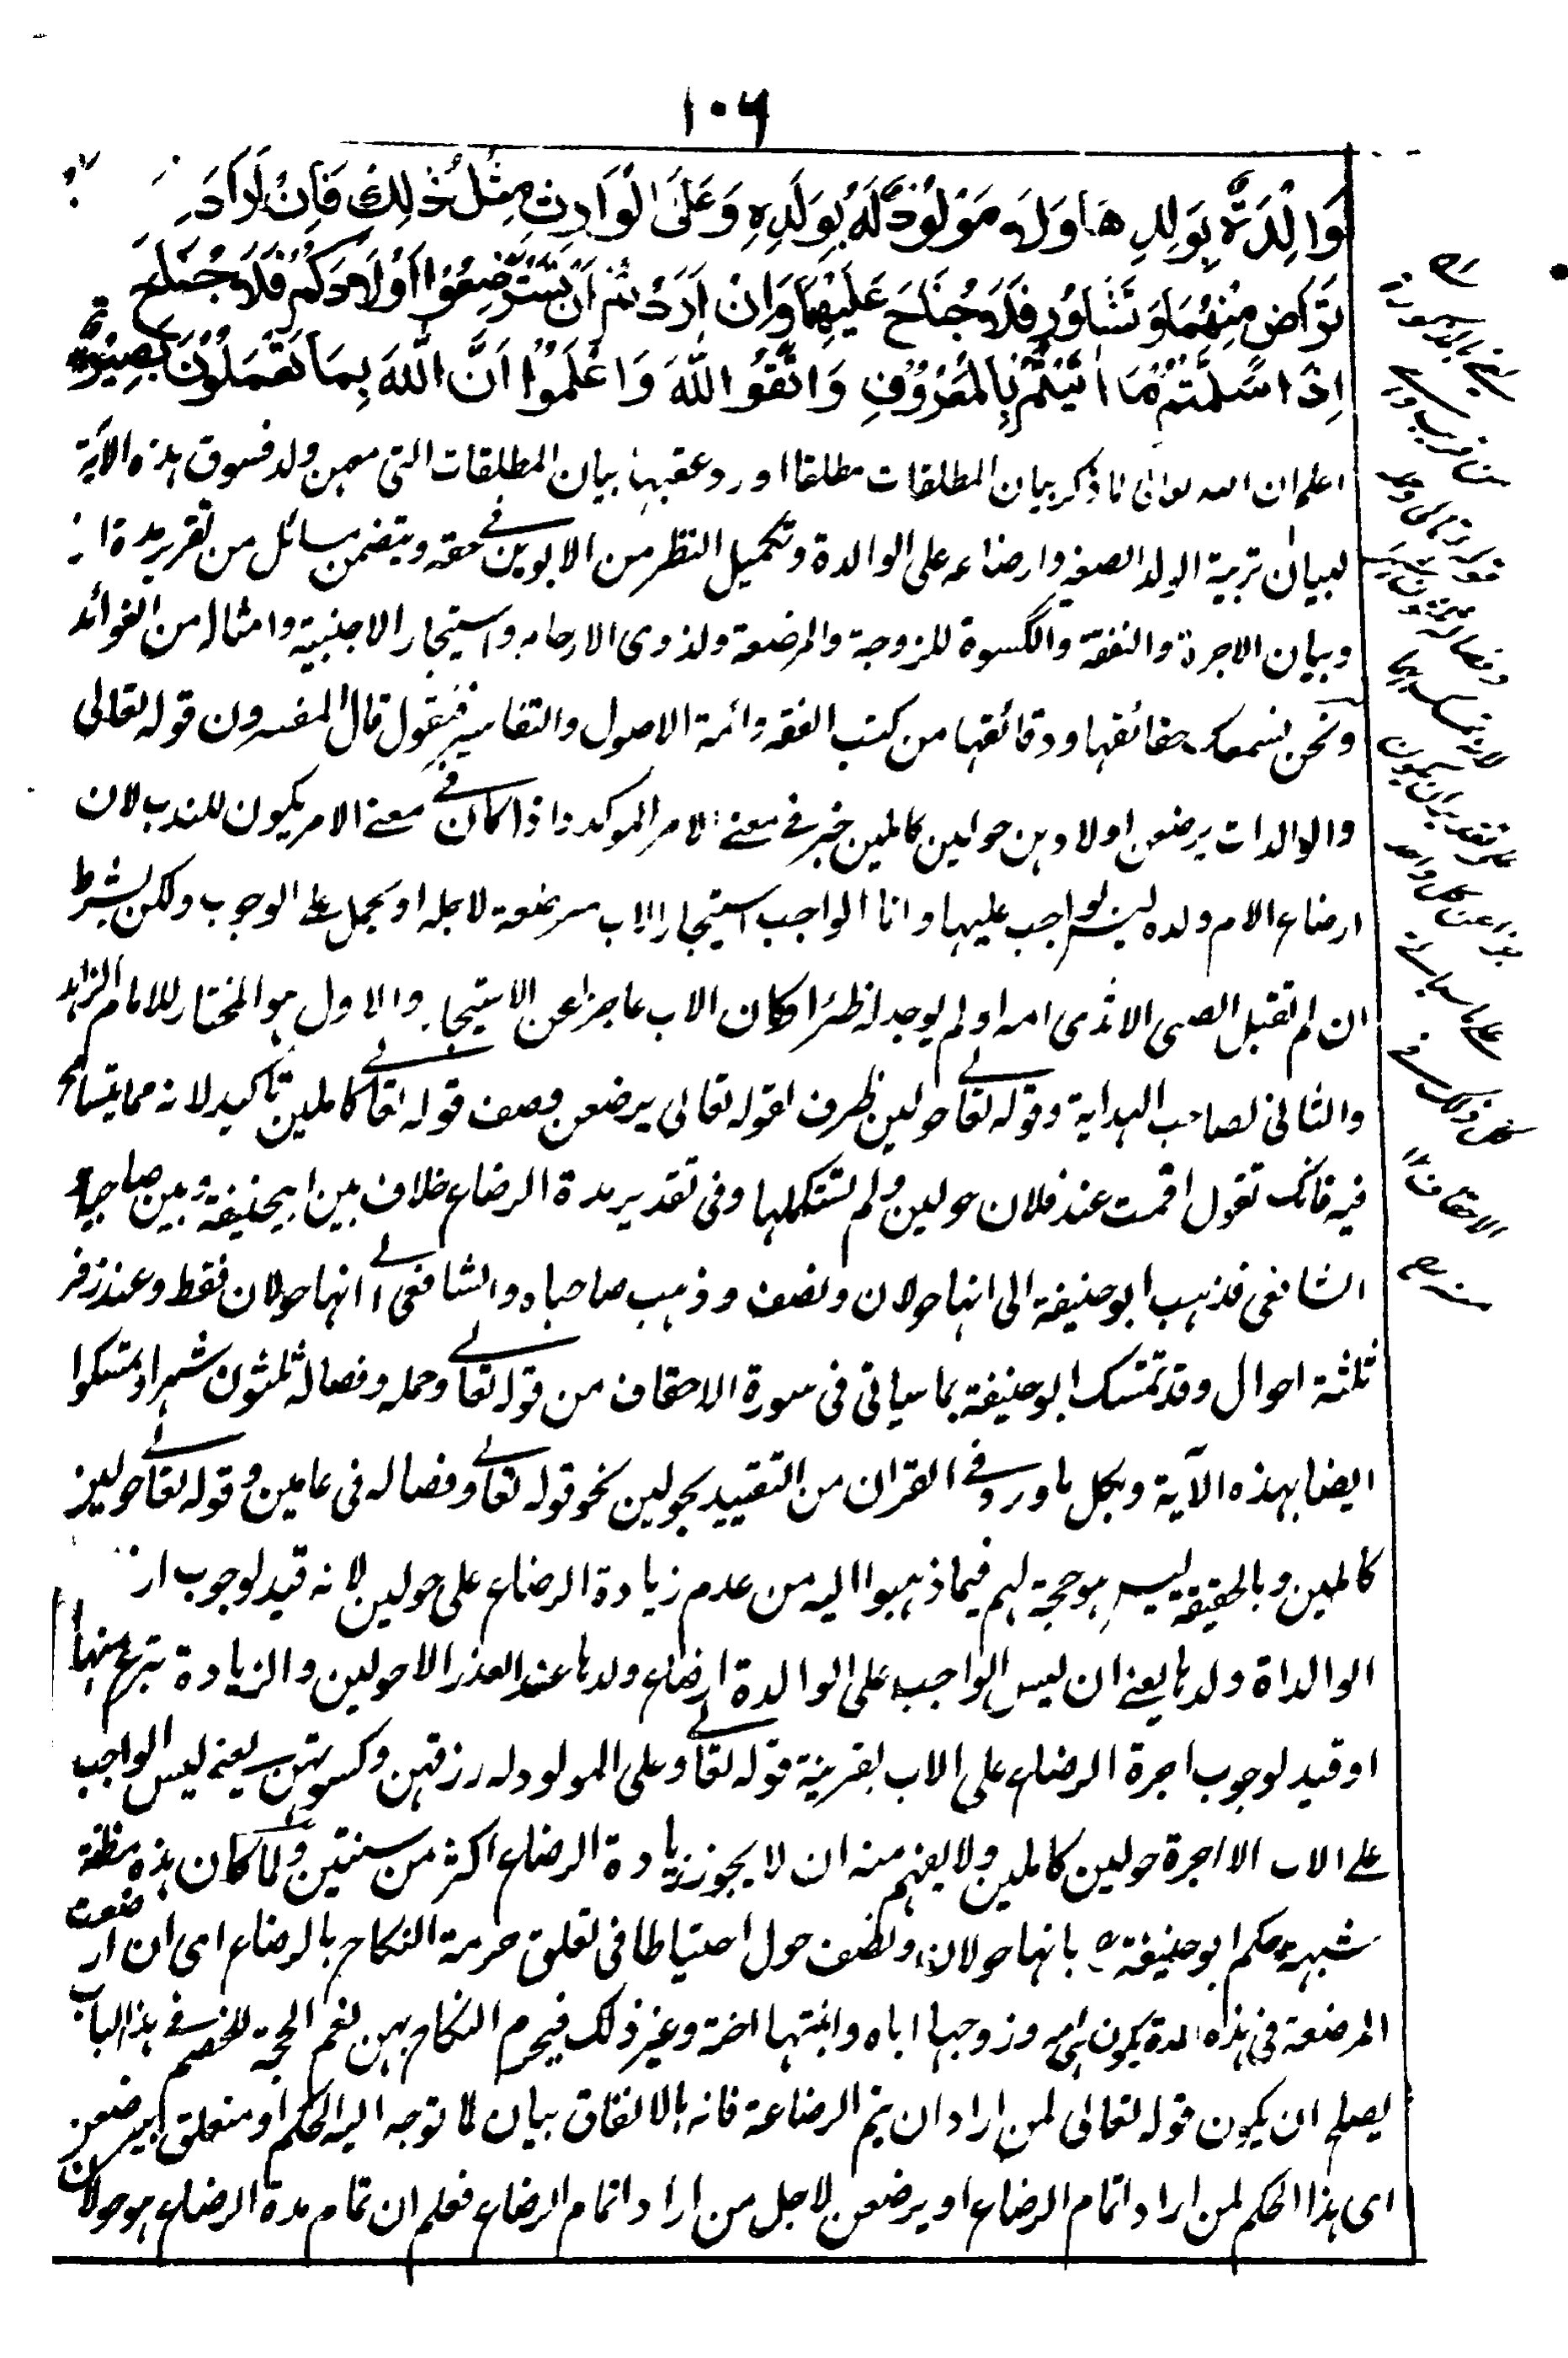 ١٠٦
وَالِدَةٌ بِوَلَدِهَا وَلَا مَوْلُوْدٌ لَّهُ بِوَلَدِهٖ وَعَلَى الْوَارِثِ مِثْلُ ذٰلِكَ فَاِنْ اَرَادَ
تَرَاضٍ مِّنْهُمَا وَتَشَاوُرٍ فَلَا جُنَاحَ عَلَيْهِمَا وَاِنْ اَرَدْتُّمْ اَنْ تَسْتَرْضِعُوْٓا اَوْلَادَكُمْ فَلَا جُنَاحَ
اِذَا سَلَّمْتُمْ مَّآ اٰتَيْتُمْ بِالْمَعْرُوْفِ وَاتَّقُوا اللّٰهَ وَاعْلَمُوْٓا اَنَّ اللّٰهَ بِمَا تَعْمَلُوْنَ بَصِيْرٌ
اعلم ان الله تعالى لما ذكر بيان المطلقات مطلقا اورد عقبها بيان المطلقات التى معهن ولد فسوق هذه الآية
لبيان تربية الولد الصغير وارضاعه على الوالدة وتكميل النظر من الابوين فى حقه ويتضمن مسائل من تقرير مدة
وبيان الاجرة والنفقة والكسوة للزوجة والمرضعة ولذوى الارحام واستيجار الاجنبية وامثاله من الفوائد
ونحن نسمعك حقائقها ودقائقها من كتب الفقه وائمة الاصول والتفاسير فنقول قال المفسرون قوله تعالى
والوالدات يرضعن اولادهن حولين كاملين خبر فى معنى الامر الموكد واذا كان فى معنى الامر يكون للندب لان
ارضاع الام ولده ليس بواجب عليها وانما الواجب استيجار الاب مرضعة لاجله او يحمل على الوجوب ولكن بشرط
ان لم تقبل الصبى الا ثدى امه او لم يوجد له ظئر او كان الاب عاجزا عن الاستيجار والاول هو المختار للامام الزاهد
والثانى لصاحب الهداية وقوله تعالى حولين ظرف لقوله تعالى يرضعن وصف قوله تعالى كاملين تاكيد لانه مما يتسامح
فيه فانك تقول اقمت عند فلان حولين ولم تستكملها وفى تقدير مدة الرضاع خلاف بين ابيحنيفة وبين صاحبيه
الشافعى فذهب ابو حنيفة الى انها حولان ونصف وذهب صاحباه والشافعى الى انها حولان فقط وعند زفر
ثلثة احوال وقد تمسك ابو حنيفة بما سياتى فى سورة الاحقاف من قوله تعالى وحمله وفصاله ثلثون شهرا وتمسكوا
ايضا بهذه الآية وبكل ما ورد فى القران من التقييد بحولين نحو قوله تعالى وفصاله فى عامين وقوله تعالى حولين
كاملين وبالحقيقة ليس هو حجة لهم فيما ذهبوا اليه من عدم زيادة الرضاع على حولين لانه قيد لوجوب
الوالداة ولدها يعنى ان ليس الواجب على الوالدة ارضاع ولدها عند العذر الا حولين والزيادة تبرع منها
او قيد لوجوب اجرة الرضاع على الاب بقرينة قوله تعالى وعلى المولود له رزقهن وكسوتهن يعنى ليس الواجب
على الاب الا اجرة حولين كاملين ولا يفهم منه ان لا يجوز زيادة الرضاع اكثر من سنتين ولما كان هذه مظنة
شبهة حكم ابو حنيفة بانها حولان ونصف حول احتياطا فى تعلق حرمة النكاح بالرضاع اى ان ارضعت
المرضعة فى هذه المدة يكون امه وزوجها اباه وابنتها اخته وغير ذلك فيحرم النكاح بهن نعم الحجة للخصم فى هذا الباب
يصلح ان يكون قوله تعالى لمن اراد ان يتم الرضاعة فانه بالاتفاق بيان لما توجه اليه الحكم او متعلق بيرضعن
اى هذا الحكم لمن اراد اتمام الرضاع او يرضعن لاجل من اراد اتمام الرضاع فعلم ان تمام مدة الرضاع هو حولان